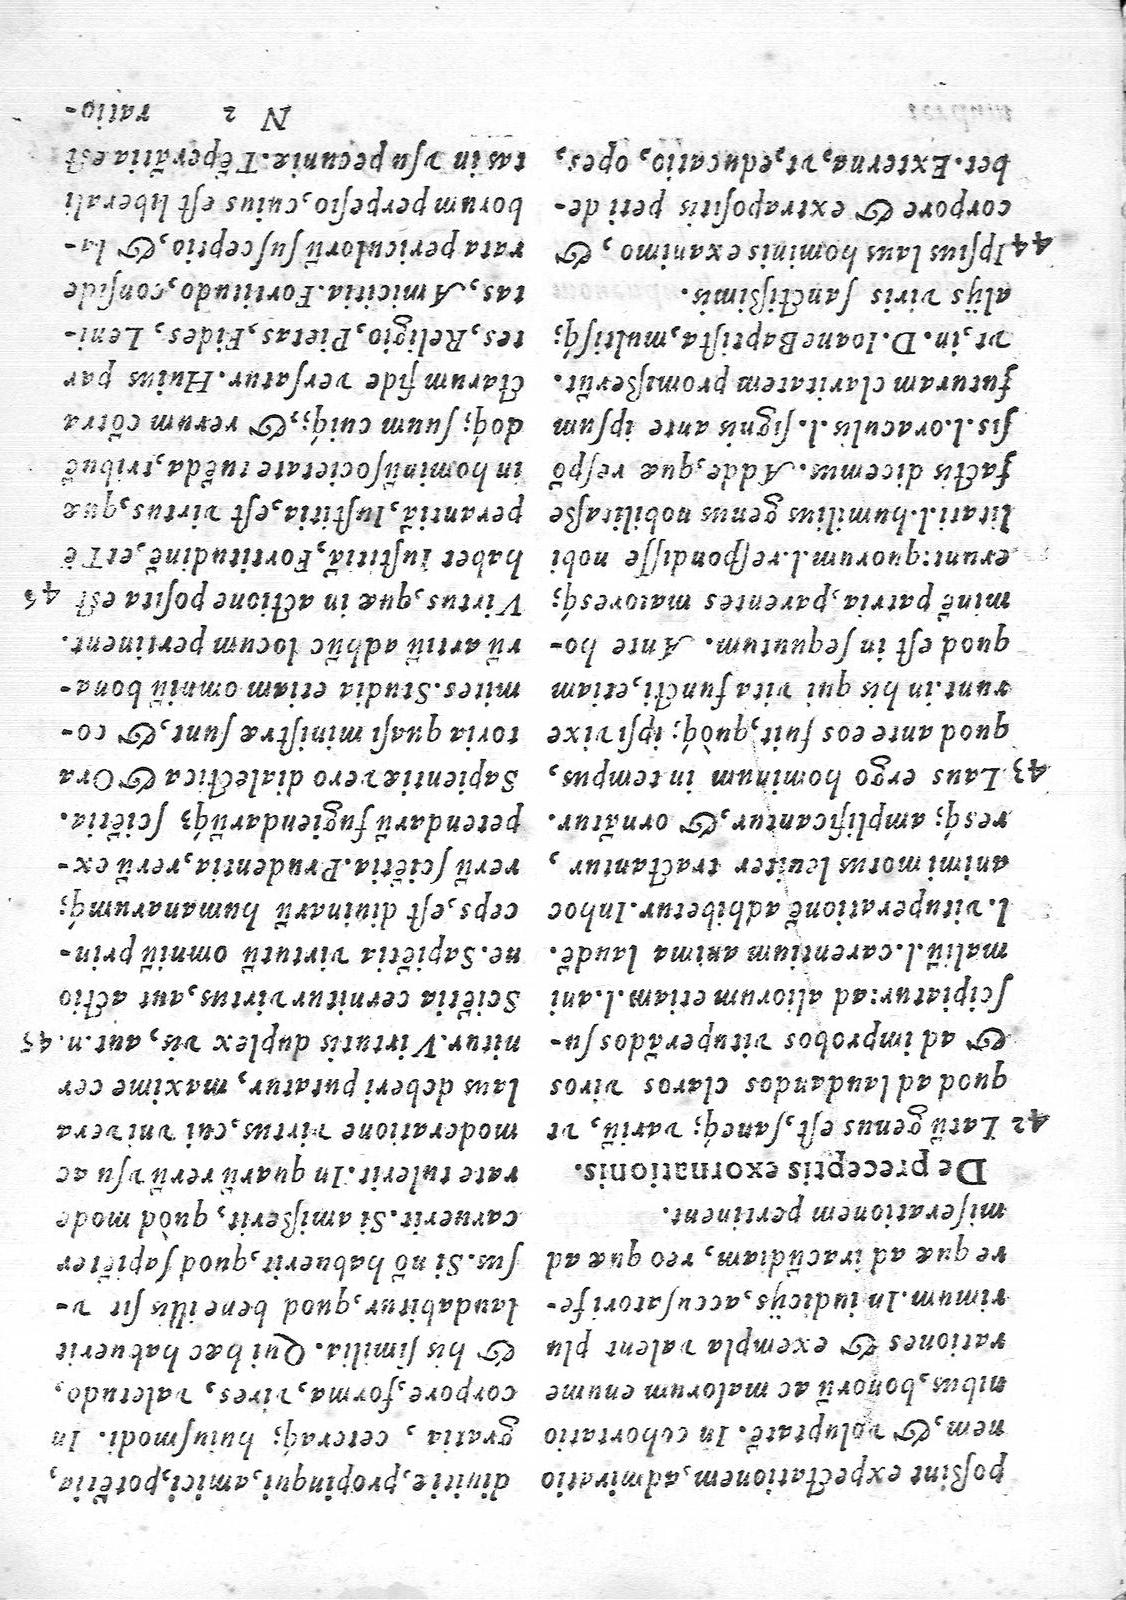 poßint expectationem, admiratio
nem, & voluptatē. In cohortatio
nibus, bonorū ac malorum enume
rationes & exempla valent plu
rimum. In iudicijs, accusatori fe-
re quæ ad iracūdiam, reo quæ ad
miserationem pertinent.
De preceptis exornationis.
42 Latū genus est, saneq; variū, vt
quod ad laudandos claros viros
& ad improbos vituperādos su-
scipiatur: ad aliorum etiam .l. ani
maliū .l. carentium anima laudē.
l. vituperationē adhibetur. In hoc
animi motus leuiter tractantur,
resq; amplificantur, & ornātur.
43 Laus ergo hominum in tempus,
quod ante eos fuit, quòq; ipsi vixe
runt. in his qui vita functi, etiam
quod est in sequutum. Ante ho-
minē patria, parentes maioresq;
erunt: quorum .l. respondisse nobi
litati .l. humilius genus nobilitaße
factis dicemus. Adde, quæ respō
sis .l. oraculis .l. signis ante ipsum
futuram claritatem promißerūt.
vt, in. D. Ioane Baptista, multisq;
alijs viris sanctißimis.
44 Ipsius laus hominis ex animo, &
corpore & extrapositis peti de-
bet. Externa, vt, educatio, opes,
diuitiæ, propinqui, amici, potētia,
gratia, ceteraq; huiusmodi. In
corpore, forma, vires, valetudo,
& his similia. Qui hæc habuerit
laudabitur, quod bene illis sit v-
sus. Si nō habuerit, quod sapiēter
caruerit. Si amißerit, quòd mode
rate tulerit. In quarū rerū vsu ac
moderatione virtus, cui vni vera
laus deberi putatur, maxime cer
nitur. Virtutis duplex vis, aut. n. 45
Sciētia cernitur virtus, aut actio
ne. Sapiētia virtutū omniū prin-
ceps, est diuinarū humanarumq;
rerū sciētia. Prudentia, rerū ex-
petendarū fugiendarūq; sciētia.
Sapientiæ vero dialectica & Ora
toria quasi ministræ sunt, & co-
mites. Studia etiam omniū bona-
rū artiū adhūc locum pertinent.
Virtus, quæ in actione posita est 46
habet Iustitiā, Fortitudinē, et Tē
perantiā, Iustitia, est virtus, quæ
in hominū societate tuēda, tribuē
doq; suum cuiq;, & rerum cōtra
ctarum fide versatur. Huius par
tes, Religio, Pietas, Fides, Leni-
tas, Amicitia. Fortitudo, conside
rata periculorū susceptio, & la-
borum perpesio, cuius est liberali
tas in vsu pecuniæ. Tēperātia est
N 2 ratio-